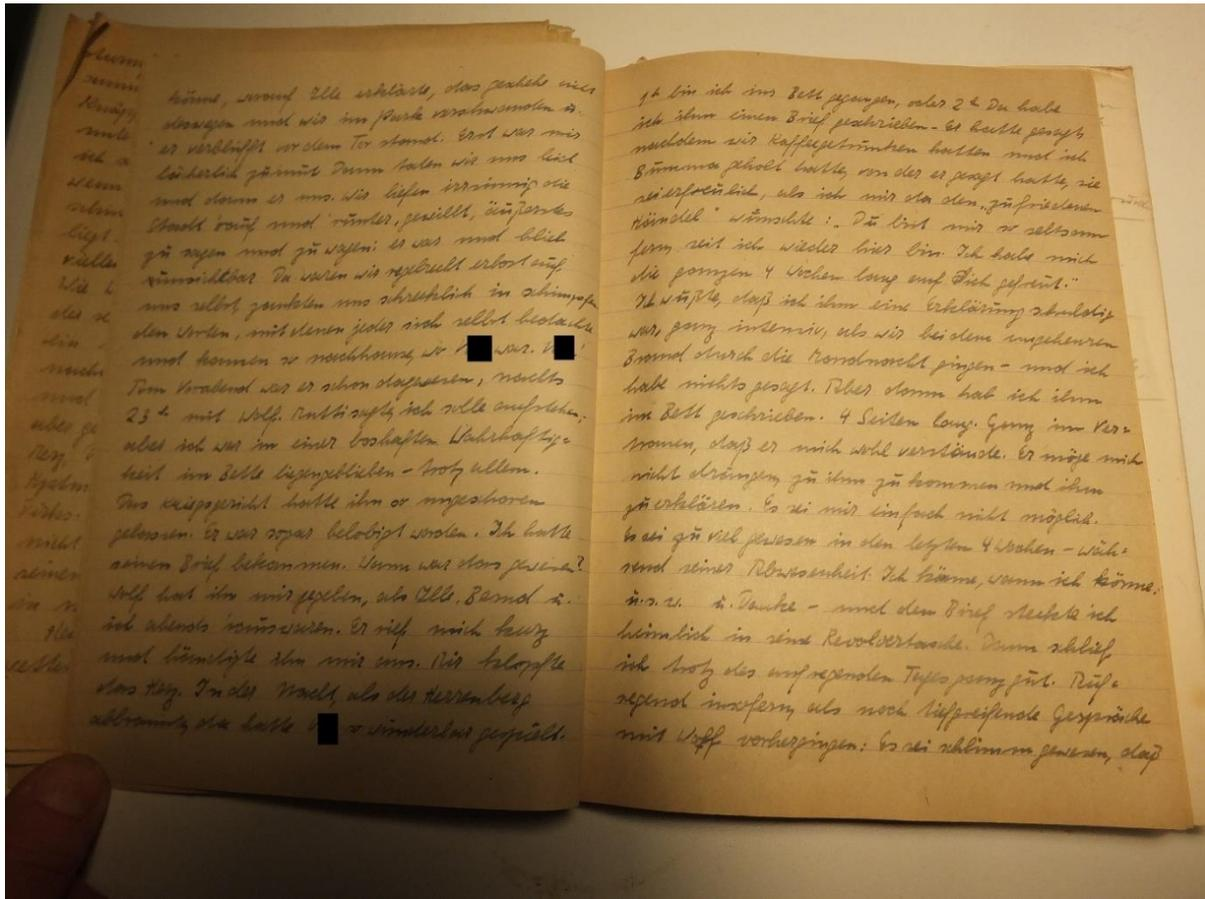 könne, worauf Ille erklärte, das geschehe uns
deswegen und wir im Park verschwanden u.
er verblüfft vor dem Tor stand. Erst war mir
lächerlich zumut. Dann taten wir uns leid
und dann er uns. Wir liefen irrsinnig die
Stadt 'rauf und 'runter, gewillt, äußerstes
zu sagen und zu wagen: er war und blieb
unsichtbar. Da waren wir regelrecht erbost auf
uns selbst, zankten uns schrecklich in
den Worten, mit denen jeder sich selbst bedachte
und kamen so nachhause, wo war.
Am Vorabend war er schon dagewesen, nachts
23 h mit Wolf. Mutti sagte, ich solle aufstehen,
aber ich war in einer boshaften Wahrhaftig=
keit im Bette liegengeblieben – trotz allem.
Das Kriegsgericht hatte ihn so ungeschoren
gelassen. Er war sogar belobigt worden. Ich hatte
seinen Brief bekommen. Wann war das gewesen?
Wolf hat ihn mir gegeben, als Ille, Bernd u.
ich abends 'rauswaren. Er rief mich kurz
und händigte ihn mir aus. Mir klopfte
das Herz. In der Nacht, als der Herrenberg
abbrannte, da hatte so wunderbar gespielt.
1 h bin ich ins Bett gegangen, oder 2 h. Da habe
ich ihm einen Brief geschrieben – Er hatte gesagt,
nachdem wir Kaffeegetrunken hatten und ich
geholt hatte, von der er gesagt hatte, sie
sei erfreulich, als ich mir da den „zufriedenen
" wünschte: „Du bist mir so seltsam
fern, seit ich wieder hier bin. Ich habe mich
die ganzen 4 Wochen lang auf Dich gefreut."
Ich wußte, daß ich ihm eine Erklärung schuldig
war, ganz intensiv, als wir bei dem ungeheuren
Brand durch die Mondnacht gingen – und ich
habe nichts gesagt. Aber dann hab ich ihm
im Bett geschrieben. 4 Seiten lang. Ganz im Ver=
trauen, daß er mich wohl verstände. Er möge mich
nicht drängen, zu ihm zu kommen und ihm
zu erklären. Es sei mir einfach nicht möglich.
Es sei zu viel gewesen in den letzten 4 Wochen – wäh=
rend seiner Abwesenheit. Ich käme, wann ich könne,
u.s.w. u. Danke – und den Brief steckte ich
heimlich in seine Revolvertasche. Dann schlief
ich trotz des aufregenden Tages ganz gut. Auf=
regend insofern, als noch tiefgreifende Gespräche
mit Wolf vorhergingen: Es sei schlimm gewesen, daß